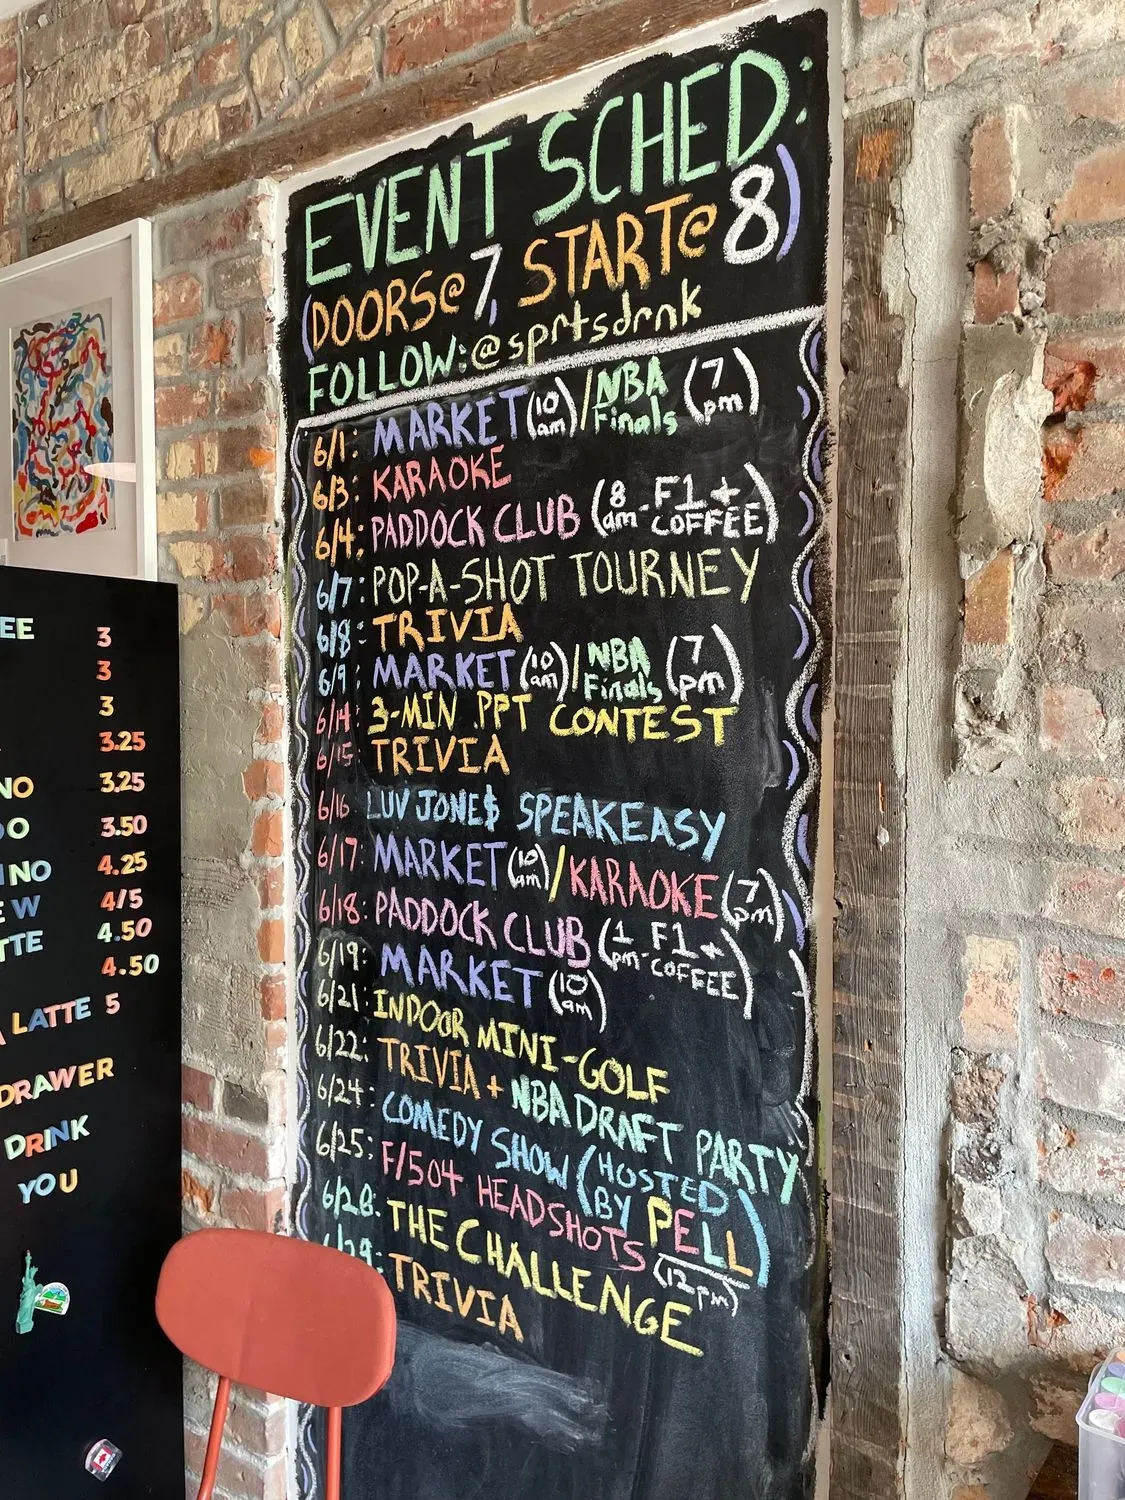 EVENT SCHED:
(DOORS@7, START@8)
FOLLOW:@sprtsdrnk
6/1: MARKET (10 am)/NBA Finals (7 pm)
6/3: KARAOKE
6/4: PADDOCK CLUB (8 am - F1 + COFFEE)
6/7: POP-A-SHOT TOURNEY
6/8: TRIVIA
6/9: MARKET (10 am)/NBA Finals (7 pm)
6/14: 3-MIN .PPT CONTEST
6/15: TRIVIA
6/16 LUV JONE$ SPEAKEASY
6/17: MARKET (10 am)/KARAOKE (7 pm)
6/18: PADDOCK CLUB (1 pm - F1 + COFFEE)
6/19: MARKET (10 am)
6/21: INDOOR MINI-GOLF
6/22: TRIVIA + NBA DRAFT PARTY
6/24: COMEDY SHOW (HOSTED BY PELL)
6/25: F/504 HEADSHOTS (12pm)
6/28: THE CHALLENGE
6/29: TRIVIA
EE 3
3
3
3.25
NO 3.25
DO 3.50
INO 4.25
EW 4/5
TTE 4.50
4.50
A LATTE 5
DRAWER
DRINK
YOU